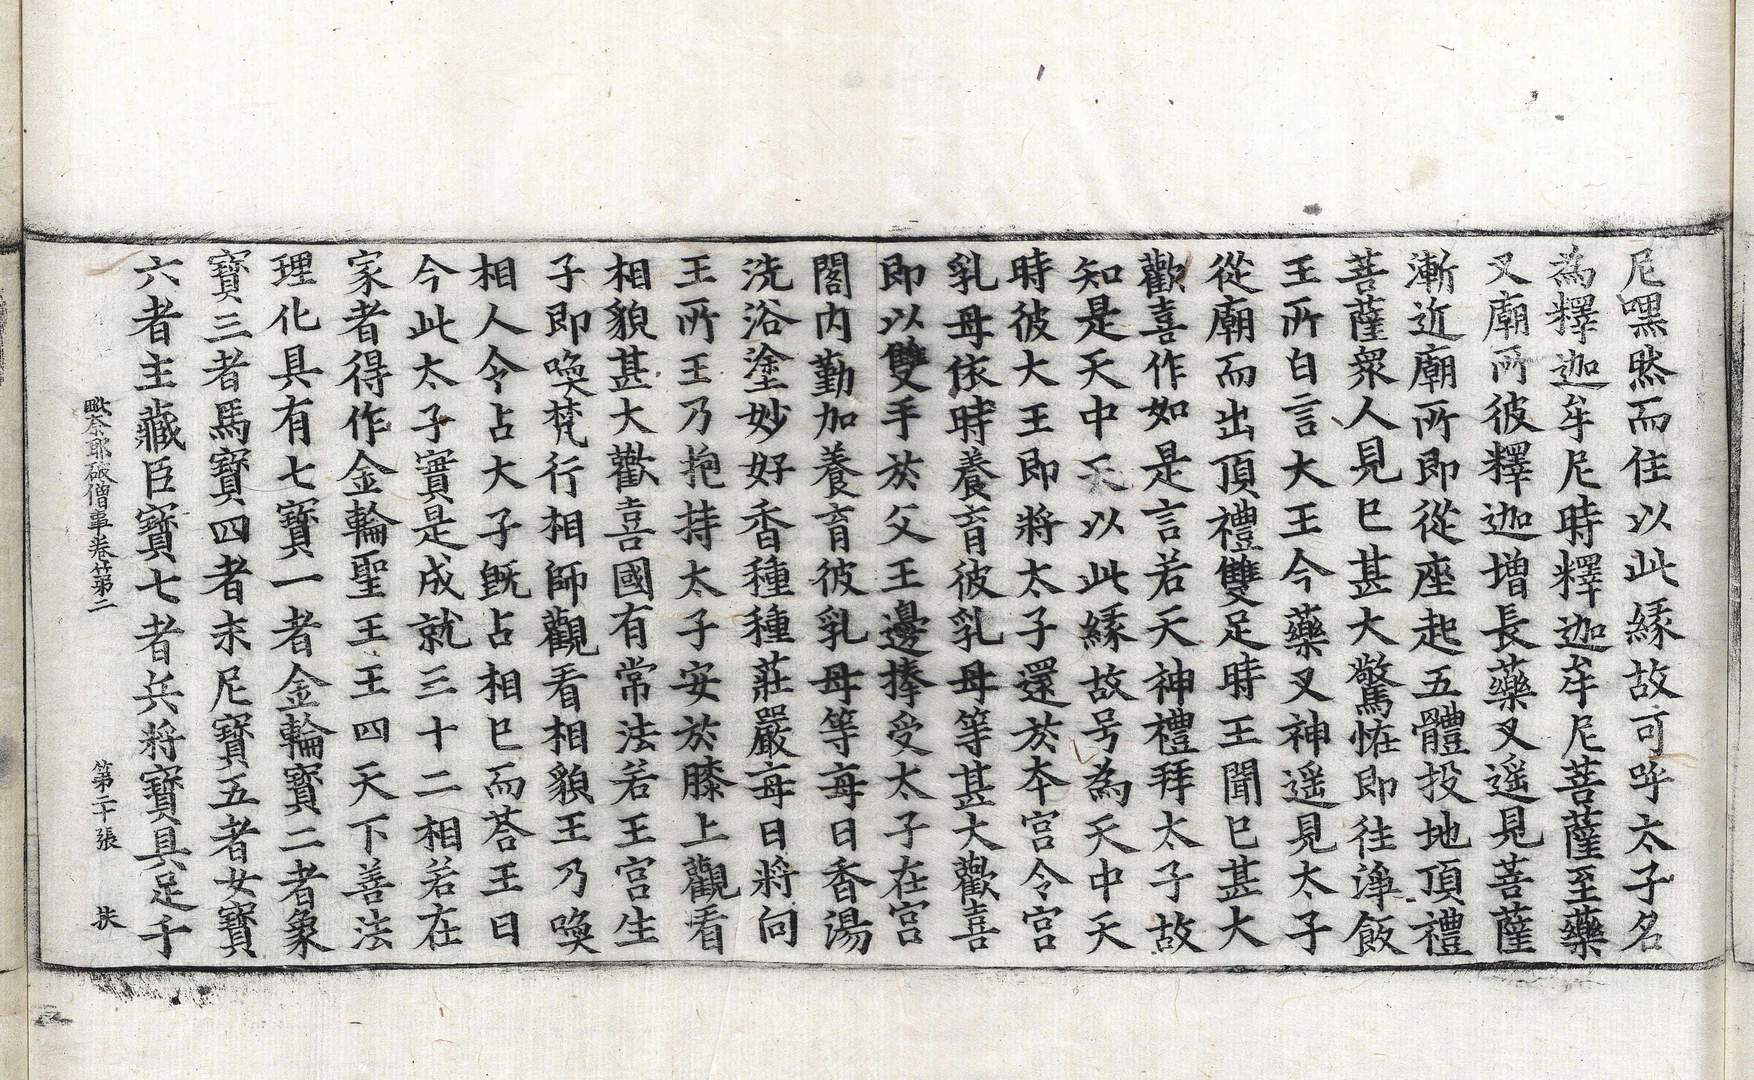 尼嘿然而住以此緣故可呼太子名
為釋迦牟尼時釋迦牟尼菩薩至藥
叉廟所彼釋迦增長藥叉遥見菩薩
漸近廟所即從座起五體投地頂禮
菩薩衆人見已甚大驚恠即往淨飯
王所白言大王今藥叉神遥見太子
從廟而出頂禮雙足時王聞已甚大
歡喜作如是言若天神禮拜太子故
知是天中天以此緣故号為天中天
時彼大王即將太子還於本宮令宮
乳母依時養育彼乳母等甚大歡喜
即以雙手於父王邊捧受太子在宮
閣內勤加養育彼乳母等每日香湯
洗浴塗妙好香種種莊嚴每日將向
王所王乃抱持太子安於膝上觀看
相貌甚大歡喜國有常法若王宮生
子即喚梵行相師觀看相貌王乃喚
相人令占大子旣占相已而荅王曰
今此太子實是成就三十二相若在
家者得作金輪聖王王四天下善法
理化具有七寶一者金輪寶二者象
寶三者馬寶四者末尼寶五者女寶
六者主藏臣寶七者兵將寶具足千
毗奈耶破僧事卷苐二 第二十張 扶